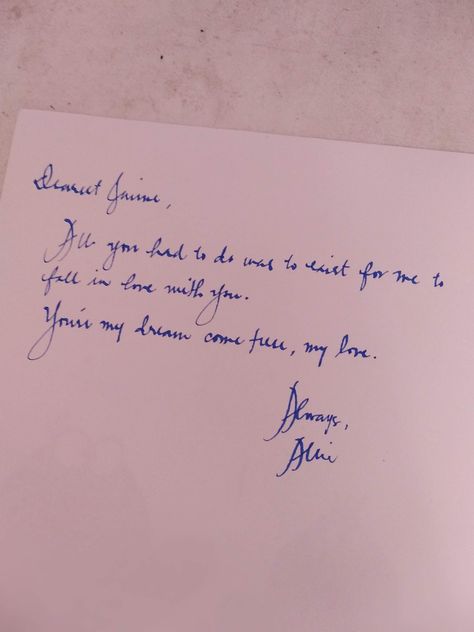 Dearest Jaime,
All you had to do was to exist for me to
fall in love with you.
You're my dream come true, my love.
Always,